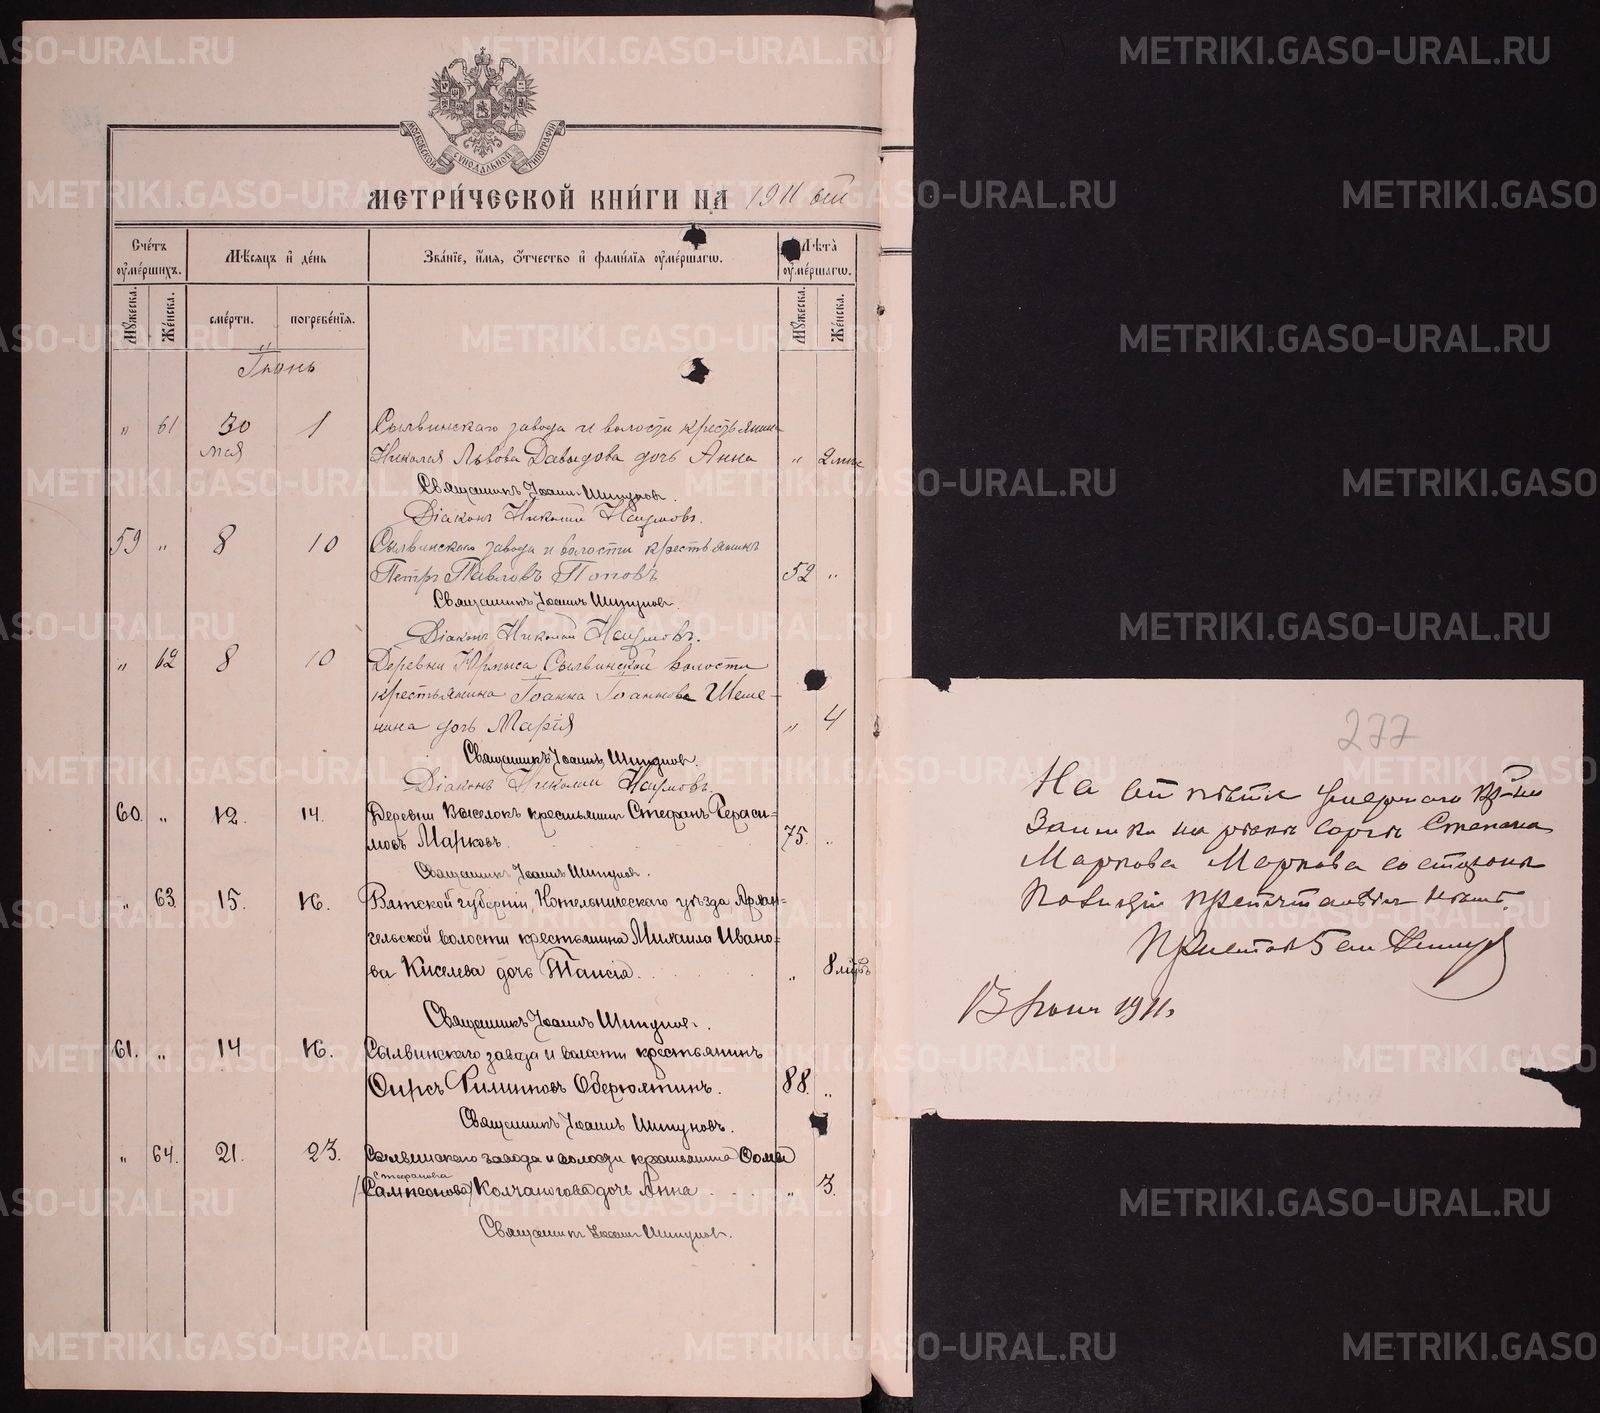 МОСКОВСКОЙ СѴНОДАЛЬНОЙ ТИПОГРАФІИ
МЕТРИ́ЧЕСКОЙ КНИ́ГИ НА 1911 ый
Сче́тъ ᲂу҆ме́ршихъ.
Мѣ́сяцъ и҆ де́нь
Зва́нїе, и҆́мѧ, ѻ҆́тчество и҆ фами́лїѧ ᲂу҆ме́ршагѡ.
Лѣта̀ ᲂу҆ме́ршагѡ.
Мꙋ́жеска.
Же́нска.
сме́рти.
погребе́нїѧ.
Мꙋ́жеска.
Же́нска.
Іюнь
" 61 30 мая 1 Сылвинскаго завода и волости крестьянина
Николая Львова Давыдова дочь Анна " 2 мѣс
Священникъ Іоаннъ Шипуновъ.
Діаконъ Николай Наумовъ.
59 " 8 10 Сылвинскаго завода и волости крестьянинъ
Петръ Павловъ Поповъ 52 "
Священникъ Іоаннъ Шипуновъ.
Діаконъ Николай Наумовъ.
" 62 8 10 Деревни Юрмыса Сылвинской волости
крестьянина Іоанна Іоаннова Шеше-
нина дочь Марія " 4
Священникъ Іоаннъ Шипуновъ.
Діаконъ Николай Наумовъ.
60. " 12. 14. Деревни Выселокъ крестьянинъ Стефанъ Гераси-
мовъ Марковъ. 75. "
Священникъ Іоаннъ Шипуновъ.
" 63. 15. 16. Вятской губерніи, Котельническаго уѣзда Архан-
гельской волости крестьянина Михаила Ивано-
ва Киселева дочь Таисія. " 8 мѣс
Священникъ Іоаннъ Шипуновъ.
61. " 14 16. Сылвинскаго завода и волости крестьянинъ
Ѳирсъ Филипповъ Оберюхтинъ. 88. "
Священникъ Іоаннъ Шипуновъ.
" 64. 21. 23. Сылвинскаго завода и волости крестьянина Ѳомы
Стефанова
(Сампсонова) Колчаногова дочь Анна " 3.
Священникъ Іоаннъ Шипуновъ.
277
На отпѣтіе умершаго
Заимки на Степана
Маркова Маркова со стороны
Полиціи препятствій нѣтъ.
Приставъ 5 ст.
13 Іюня 1911.
METRIKI.GASO-URAL.RU